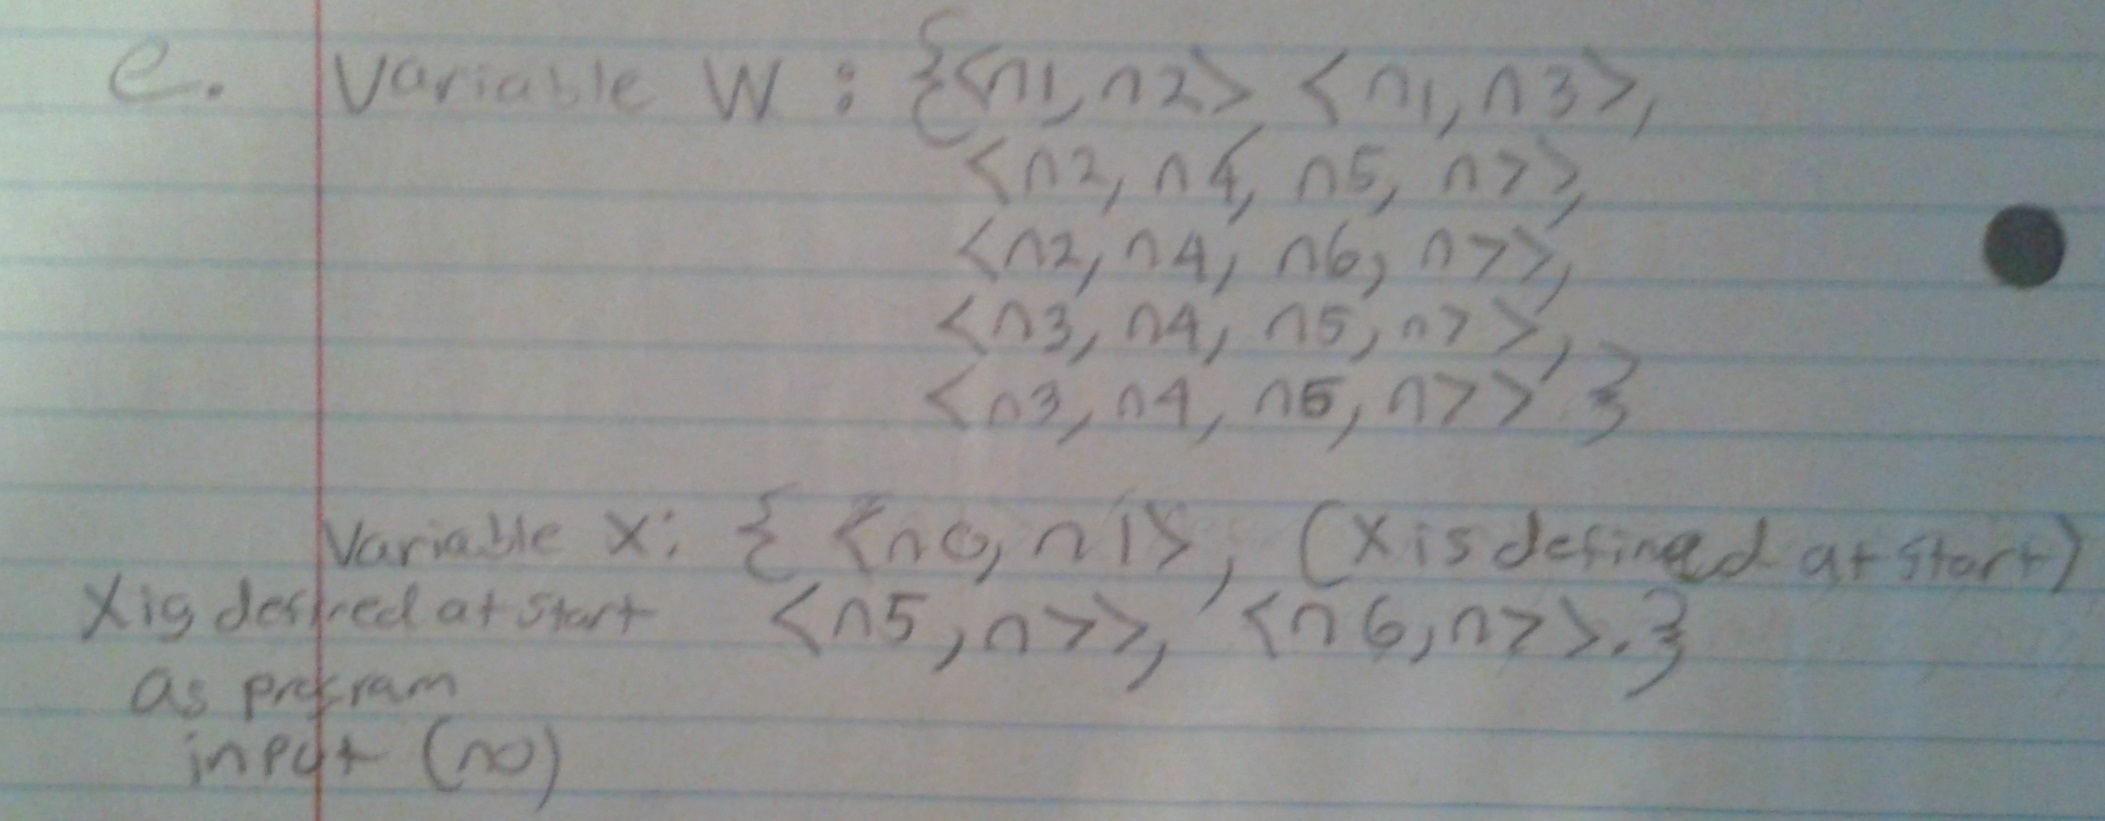 e. Variable W : {<n1, n2> <n1, n3>,
<n2, n4, n5, n7>,
<n2, n4, n6, n7>,
<n3, n4, n5, n7>,
<n3, n4, n5, n7>, }
Variable X: { <n0, n1>, (X is defined at start)
X is defined at start <n5, n7>, <n6, n7>.}
as program
input (n0)